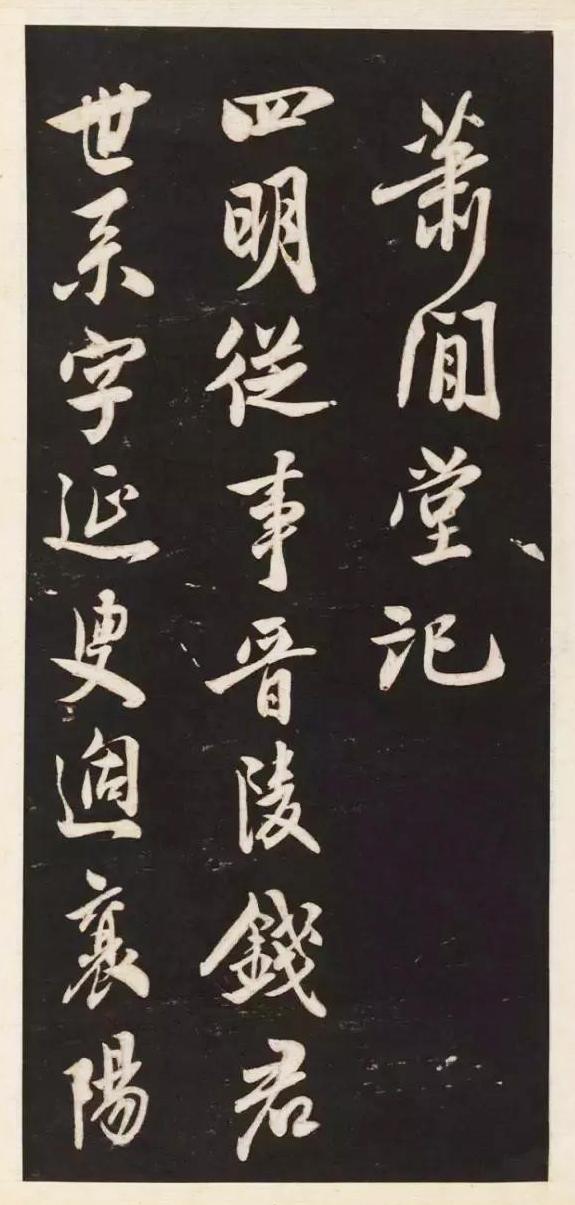 蕭閒堂記
四明從事晉陵錢君
世系字延叟週襄陽